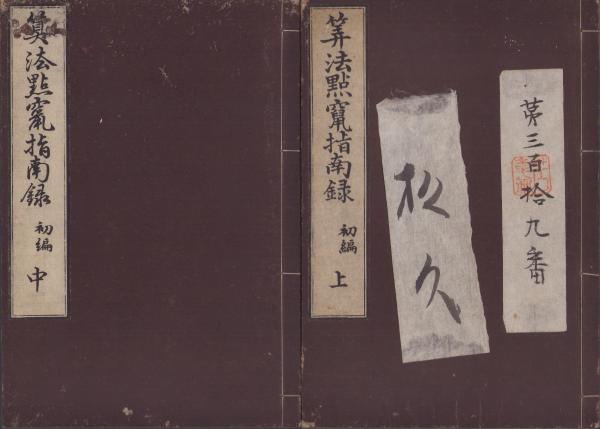 算法點竄指南録
初編
上
松久
第三百拾九番
筭法點竄指南録
初編
中